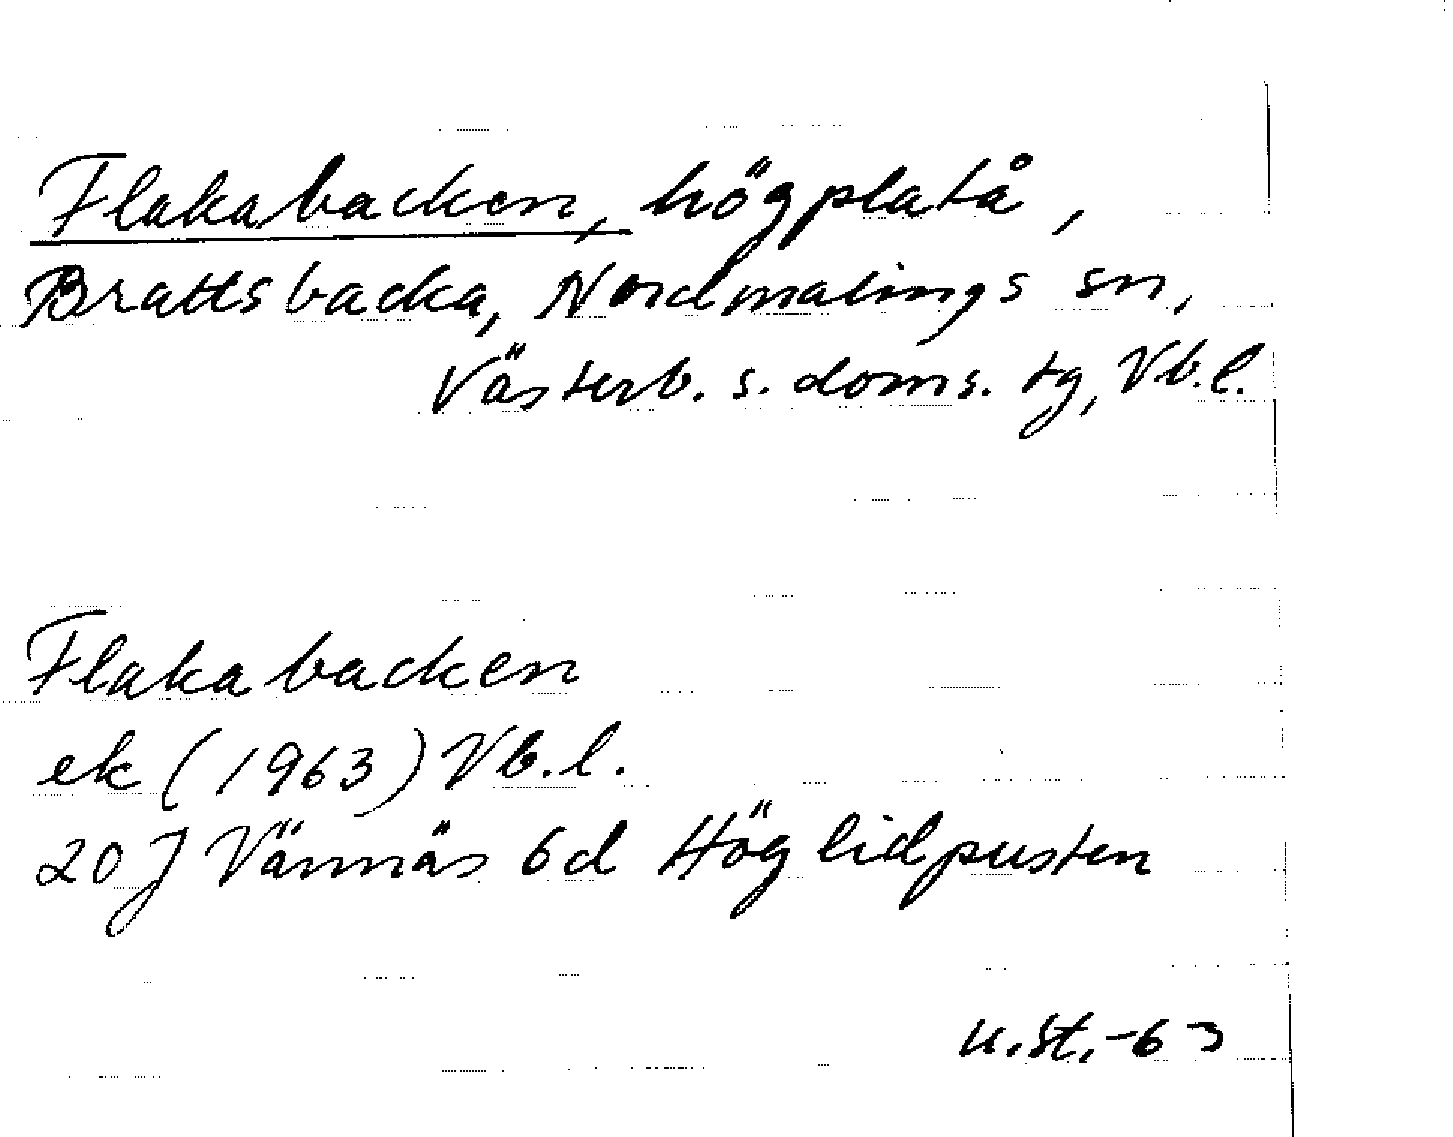 Flakabacken, högplatå,
Brattsbacka, Nordmalings sn,
Västerb. s. doms. tg, Vb.l.
Flakabacken
ek (1963) Vb.l.
20 J Vännäs 6d Höglidpusten
u.st.-63